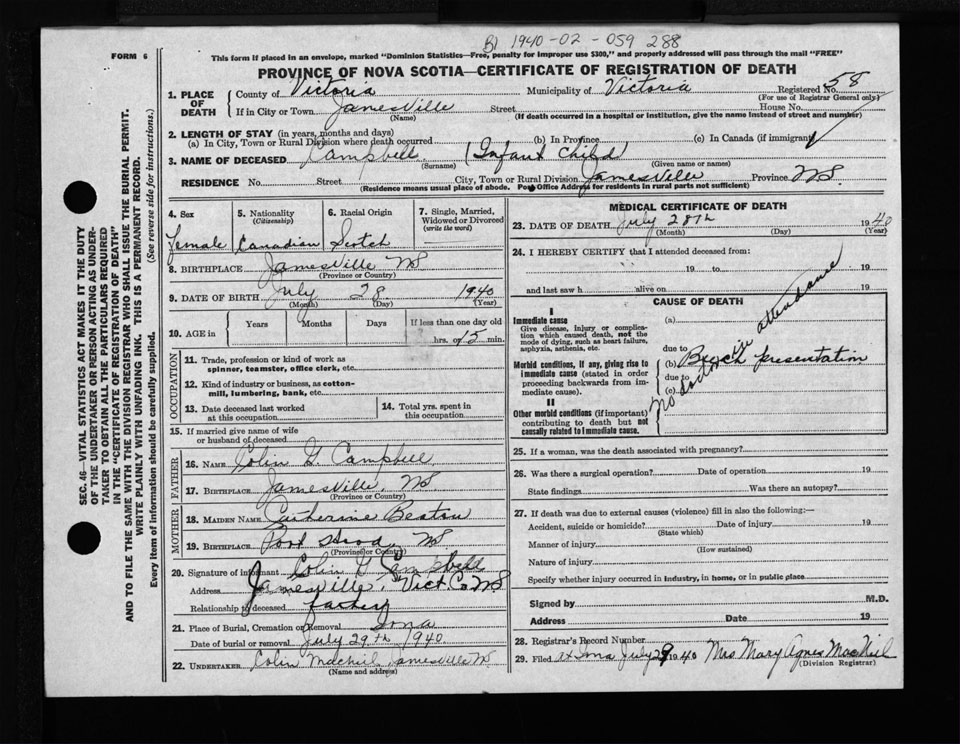 B) 1940-02-059 288
FORM 6
This form if placed in an envelope, marked "Dominion Statistics—Free, penalty for improper use $300," and properly addressed will pass through the mail "FREE"
PROVINCE OF NOVA SCOTIA—CERTIFICATE OF REGISTRATION OF DEATH
1. PLACE OF DEATH County of Victoria Municipality of Victoria Registered No. 58
(For use of Registrar General only)
If in City or Town Jamesville Street House No.
(Name) (If death occurred in a hospital or institution, give the name instead of street and number)
2. LENGTH OF STAY (in years, months and days)
(a) In City, Town or Rural Division where death occurred (b) In Province (c) In Canada (if immigrant)
3. NAME OF DECEASED Campbell (Infant Child)
(Surname) (Given name or names)
RESIDENCE No. Street City, Town or Rural Division Jamesville Province NS
(Residence means usual place of abode. Post Office Address for residents in rural parts not sufficient)
SEC. 46—VITAL STATISTICS ACT MAKES IT THE DUTY
OF THE UNDERTAKER OR PERSON ACTING AS UNDER-
TAKER TO OBTAIN ALL THE PARTICULARS REQUIRED
IN THE "CERTIFICATE OF REGISTRATION OF DEATH"
AND TO FILE THE SAME WITH THE DIVISION REGISTRAR WHO SHALL ISSUE THE BURIAL PERMIT.
WRITE PLAINLY WITH UNFADING INK. THIS IS A PERMANENT RECORD.
Every item of information should be carefully supplied. (See reverse side for instructions.)
4. Sex 5. Nationality (Citizenship) 6. Racial Origin 7. Single, Married, Widowed or Divorced (write the word)
Female Canadian Scotch
8. BIRTHPLACE Jamesville NS
(Province or Country)
9. DATE OF BIRTH July 28 1940
(Month) (Day) (Year)
10. AGE in Years Months Days If less than one day old
hrs. or 12 min.
OCCUPATION
11. Trade, profession or kind of work as
spinner, teamster, office clerk, etc.
12. Kind of industry or business, as cotton-
mill, lumbering, bank, etc.
13. Date deceased last worked
at this occupation
14. Total yrs. spent in
this occupation
15. If married give name of wife
or husband of deceased
FATHER
16. NAME Colin G Campbell
17. BIRTHPLACE Jamesville, NS
(Province or Country)
MOTHER
18. MAIDEN NAME Catherine Beaton
19. BIRTHPLACE Port Hood, NS
(Province or Country)
20. Signature of informant Colin G Campbell
Address Jamesville, Vict. Co NS
Relationship to deceased father
21. Place of Burial, Cremation or Removal Iona
Date of burial or removal July 29th 1940
22. UNDERTAKER Colin MacNeil Jamesville NS
(Name and address)
MEDICAL CERTIFICATE OF DEATH
23. DATE OF DEATH July 28th 1940
(Month) (Day) (Year)
24. I HEREBY CERTIFY that I attended deceased from:
19 to 19
and last saw h alive on 19
CAUSE OF DEATH
I
Immediate cause
Give disease, injury or complica-
tion which caused death, not the
mode of dying, such as heart failure,
asphyxia, asthenia, etc.
(a)
due to
Morbid conditions, if any, giving rise to
immediate cause (stated in order
proceeding backwards from im-
mediate cause).
(b) Breech presentation
due to
(c)
No doctor in attendance
II
Other morbid conditions (if important)
contributing to death but not
causally related to immediate cause.
25. If a woman, was the death associated with pregnancy?
26. Was there a surgical operation? Date of operation 19
State findings Was there an autopsy?
27. If death was due to external causes (violence) fill in also the following:—
Accident, suicide or homicide? Date of injury 19
(State which)
Manner of injury
(How sustained)
Nature of injury
Specify whether injury occurred in industry, in home, or in public place
Signed by M.D.
Address Date 19
28. Registrar's Record Number
29. Filed at Iona July 29 1940 Mrs Mary Agnes MacNeil
(Division Registrar)